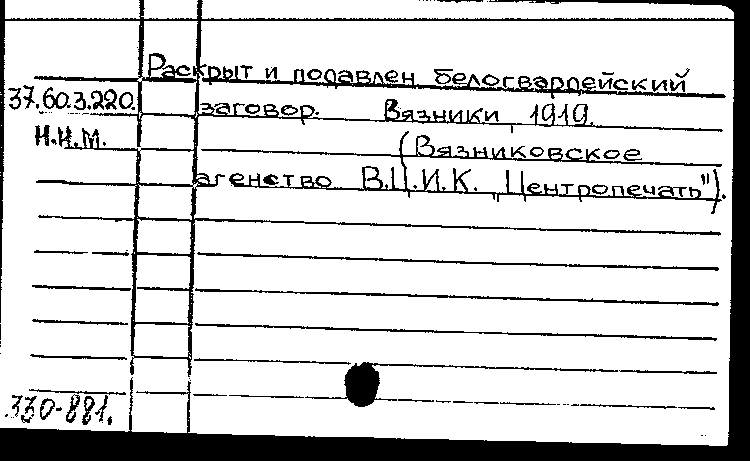 Раскрыт и подавлен белогвардейский
37.60.3.220. заговор. Вязники, 1919.
Н.Н.М. (Вязниковское
агенство В.Ц.И.К. „Центропечать").
330-881.